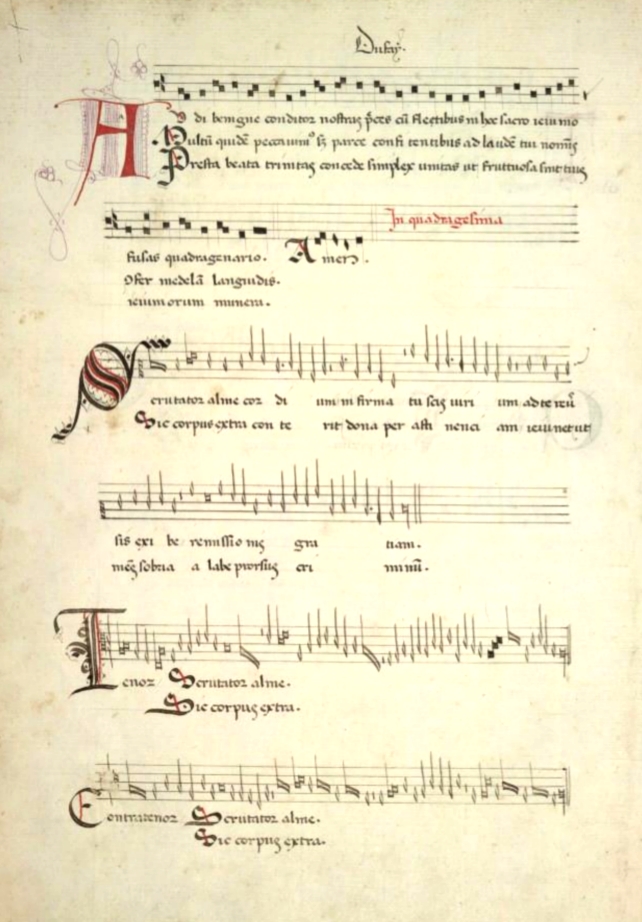 Dufay.
Audi benigne conditor nostras p̄ces cū fletibus in hoc sacro ieiunio
Multū quidē peccauimꝰ sꝫ parce confitentibus ad laudē tui nomīs
Presta beata trinitas concede simplex unitas ut fructuosa sint tuis
In quadragesima
fusas quadragenario. Amen.
ꝯfer medelā languidis.
ieiuniorum munera.
Scrutator alme cor di um infirma tu scis uiri um ad te reu
Sic corpus extra con te rit dona per absti nenci am ieiunet ut
sis exi be remissio nis gra tiam.
mēs sobria a labe prorsus cri minū.
Tenor Scrutator alme.
Sic corpus extra.
Contratenor Scrutator alme.
Sic corpus extra.